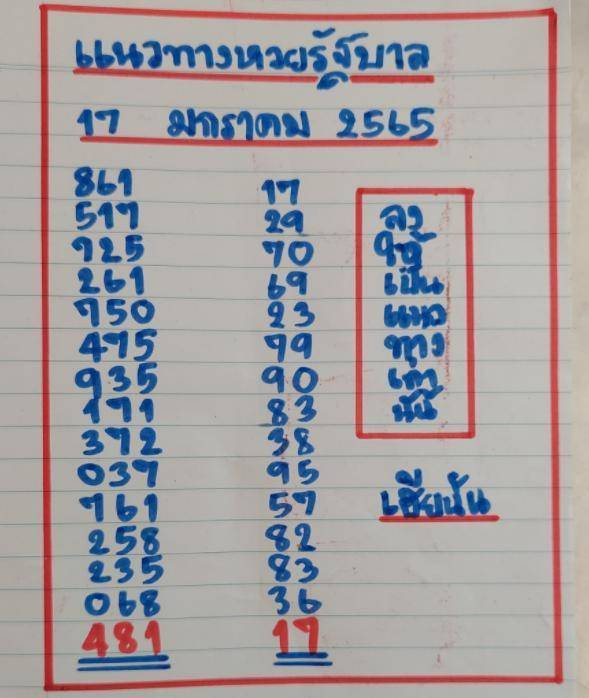 แนวทางหวยรัฐบาล
17 มกราคม 2565
861 17
517 29
725 70
261 69
750 23
475 79
935 90
171 83
372 38
037 95
761 57
258 82
235 83
068 36
481 17
ลง
ให้
เป็น
แนว
ทาง
เท่า
นั้น
เซียนัน